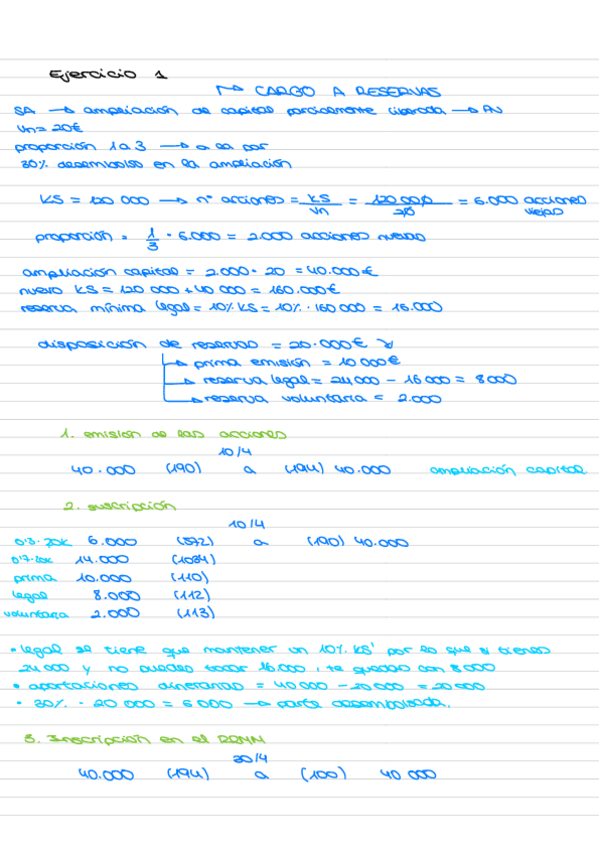 Ejercicio 1
↳ CARGO A RESERVAS
SA → ampliación de capital parcialmente liberada → PN
Vn = 20€
proporción 1 a 3 → a la par
30% desembolso en la ampliación
KS = 120 000 → nº acciones = KS / Vn = 120.000 / 20 = 6.000 acciones viejas
proporción = 1/3 · 6.000 = 2.000 acciones nuevas
ampliación capital = 2.000 · 20 = 40.000€
nuevo KS = 120 000 + 40 000 = 160.000€
reserva mínima legal = 10% KS = 10% · 160 000 = 16.000
disposición de reservas = 20.000€ ↘
→ prima emisión = 10 000€
→ reserva legal = 24 000 - 16 000 = 8000
→ reserva voluntaria = 2.000
1. emisión de las acciones
10/4
40.000 (190) a (194) 40.000 ampliación capital
2. suscripción
10/4
0'3·20K 6.000 (572) a (190) 40.000
0'7·20K 14.000 (1034)
prima 10.000 (110)
legal 8.000 (112)
voluntaria 2.000 (113)
• legal se tiene que mantener un 10% KS' por lo que si tienes
24 000 y no puedes tocar 16 000, te quedas con 8000
• aportaciones dinerarias = 40 000 - 20 000 = 20 000
• 30% · 20 000 = 6 000 → parte desembolsada.
3. Inscripción en el RRMM
30/4
40.000 (194) a (100) 40 000